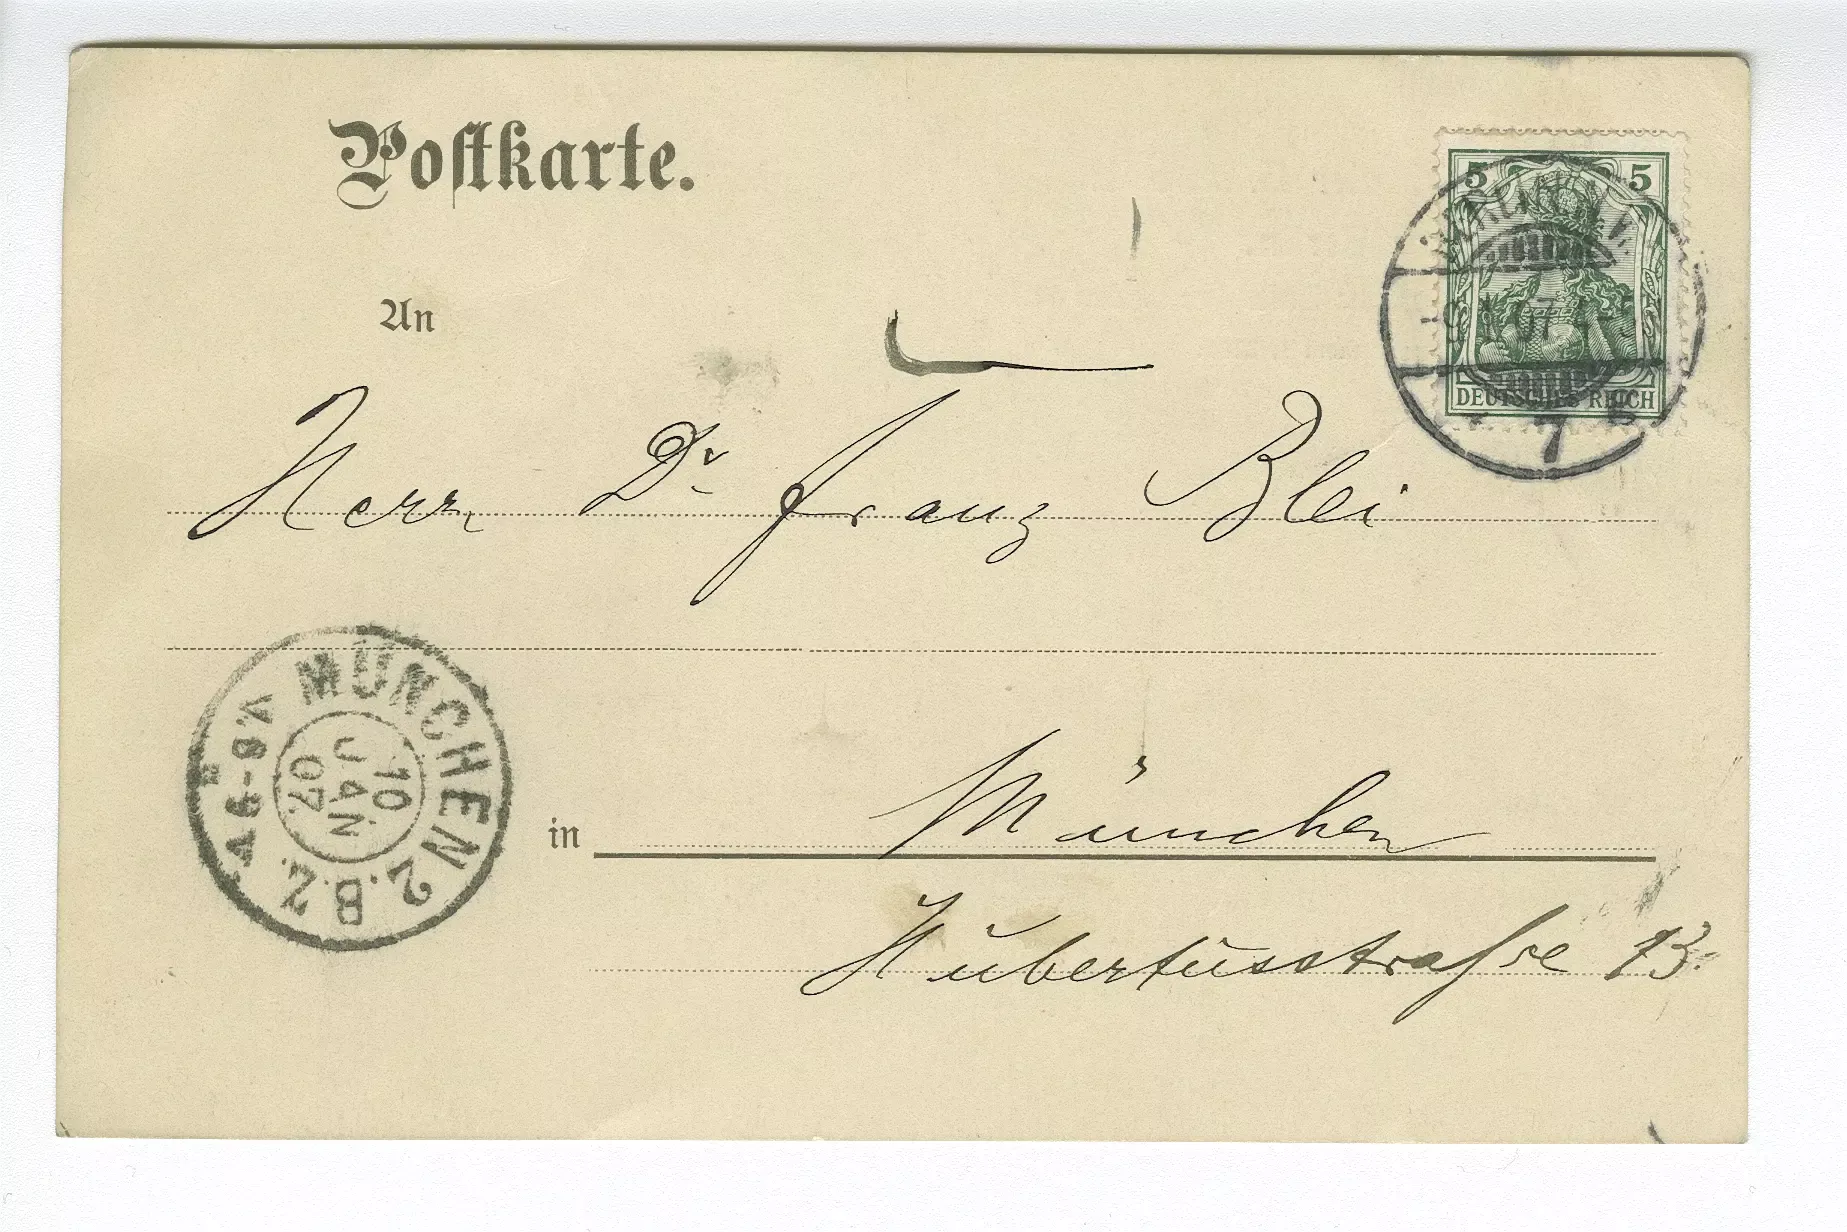 Postkarte.
5 5
DEUTSCHES REICH
BERLIN N.W.
9.1.07
* 7
An
Herr Dr Franz Blei
MÜNCHEN 2. B.Z.
10
JAN
07.
V.8-9V.
in München
Hubertusstraße 13.